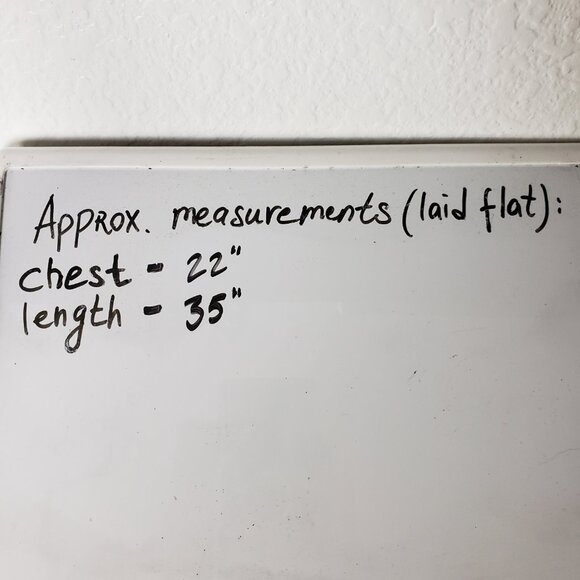 Approx. measurements (laid flat):
chest - 22"
length - 35"